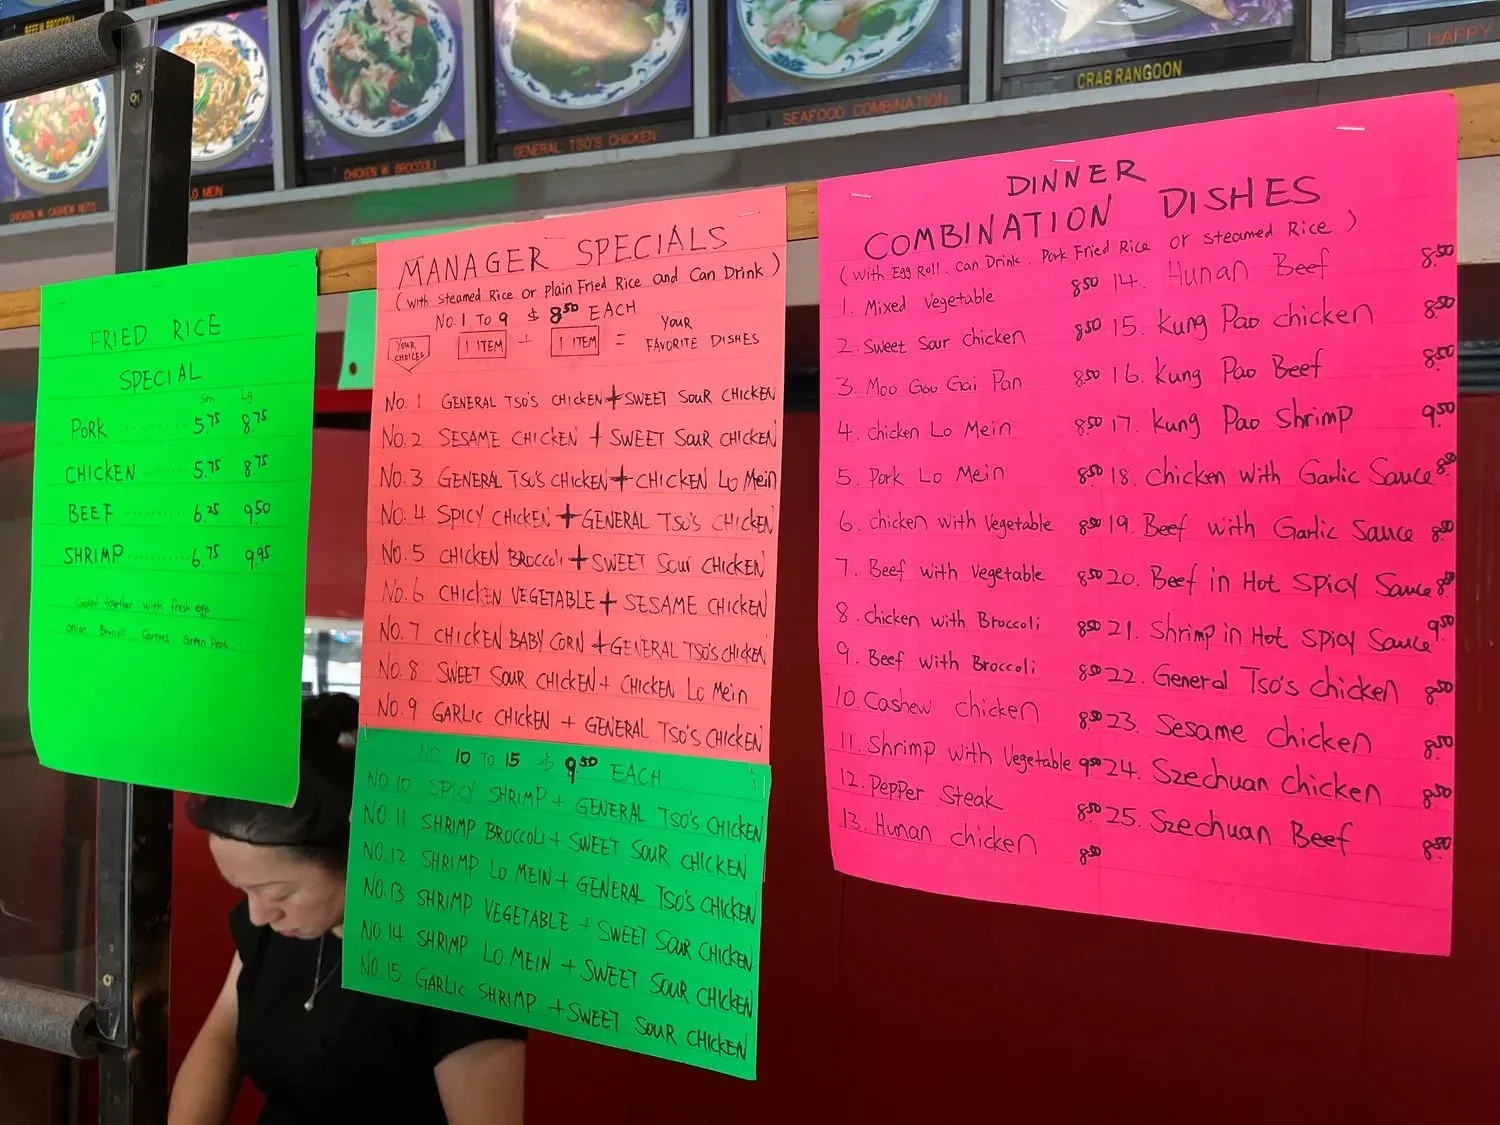 BEEF W. BROCCOLI
CHICKEN W. CASHEW NUTS
LO MEIN
CHICKEN W. BROCCOLI
GENERAL TSO'S CHICKEN
SEAFOOD COMBINATION
CRAB RANGOON
HAPPY
FRIED RICE
SPECIAL
Sm Lg
PORK ........ 5.75 8.75
CHICKEN ....... 5.75 8.75
BEEF .......... 6.25 9.50
SHRIMP .......... 6.75 9.95
Cooked together with fresh eggs
onion. Broccoli. Carrots. Green Peas.
MANAGER SPECIALS
(with Steamed Rice or Plain Fried Rice and Can Drink)
NO. 1 TO 9 $ 8.50 EACH
YOUR CHOICES 1 ITEM + 1 ITEM = YOUR FAVORITE DISHES
NO. 1 GENERAL TSO'S CHICKEN + SWEET SOUR CHICKEN
NO. 2 SESAME CHICKEN + SWEET SOUR CHICKEN
NO. 3 GENERAL TSO'S CHICKEN + CHICKEN LO Mein
NO. 4 SPICY CHICKEN + GENERAL TSO'S CHICKEN
NO. 5 CHICKEN BROCCOLI + SWEET SOUR CHICKEN
NO. 6 CHICKEN VEGETABLE + SESAME CHICKEN
NO. 7 CHICKEN BABY CORN + GENERAL TSO'S CHICKEN
NO. 8 SWEET SOUR CHICKEN + CHICKEN LO Mein
NO. 9 GARLIC CHICKEN + GENERAL TSO'S CHICKEN
NO 10 TO 15 $ 9.50 EACH
NO. 10 SPICY SHRIMP + GENERAL TSO'S CHICKEN
NO. 11 SHRIMP BROCCOLI + SWEET SOUR CHICKEN
NO. 12 SHRIMP LO MEIN + GENERAL TSO'S CHICKEN
NO. 13 SHRIMP VEGETABLE + SWEET SOUR CHICKEN
NO. 14 SHRIMP LO MEIN + SWEET SOUR CHICKEN
NO. 15 GARLIC SHRIMP + SWEET SOUR CHICKEN
DINNER
COMBINATION DISHES
(with Egg Roll. Can Drink. Pork Fried Rice or Steamed Rice)
1. Mixed Vegetable 8.50
2. Sweet Sour chicken 8.50
3. Moo Goo Gai Pan 8.50
4. Chicken Lo Mein 8.50
5. Pork Lo Mein 8.50
6. chicken with Vegetable 8.50
7. Beef with Vegetable 8.50
8. chicken with Broccoli 8.50
9. Beef with Broccoli 8.50
10. Cashew chicken 8.50
11. Shrimp with Vegetable 9.50
12. Pepper Steak 8.50
13. Hunan chicken 8.50
14. Hunan Beef 8.50
15. Kung Pao chicken 8.50
16. Kung Pao Beef 8.50
17. Kung Pao Shrimp 9.50
18. Chicken with Garlic Sauce 8.50
19. Beef with Garlic Sauce 8.50
20. Beef in Hot Spicy Sauce 8.50
21. Shrimp in Hot Spicy Sauce 9.50
22. General Tso's chicken 8.50
23. Sesame chicken 8.50
24. Szechuan chicken 8.50
25. Szechuan Beef 8.50